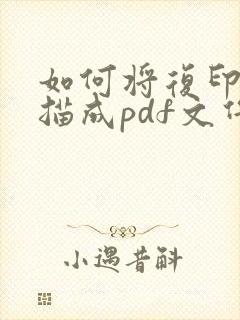 如何将復印
描成pdf文件
小遇昔斛